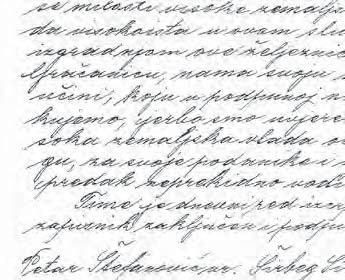 se milosti visoke zemaljs
da visokoista u ovom slu
izgradnjom ove željeznic
Gračanicu, nama svoju
učini, koju u potpunoj
kujemo, jerbo smo uvjere
soka zemaljska vlada
gu, za svoje podanike i
predak neprekidno vodi
Time je dnevni red izcr
zapisnik zaključen i podpi
Petar Stefanović